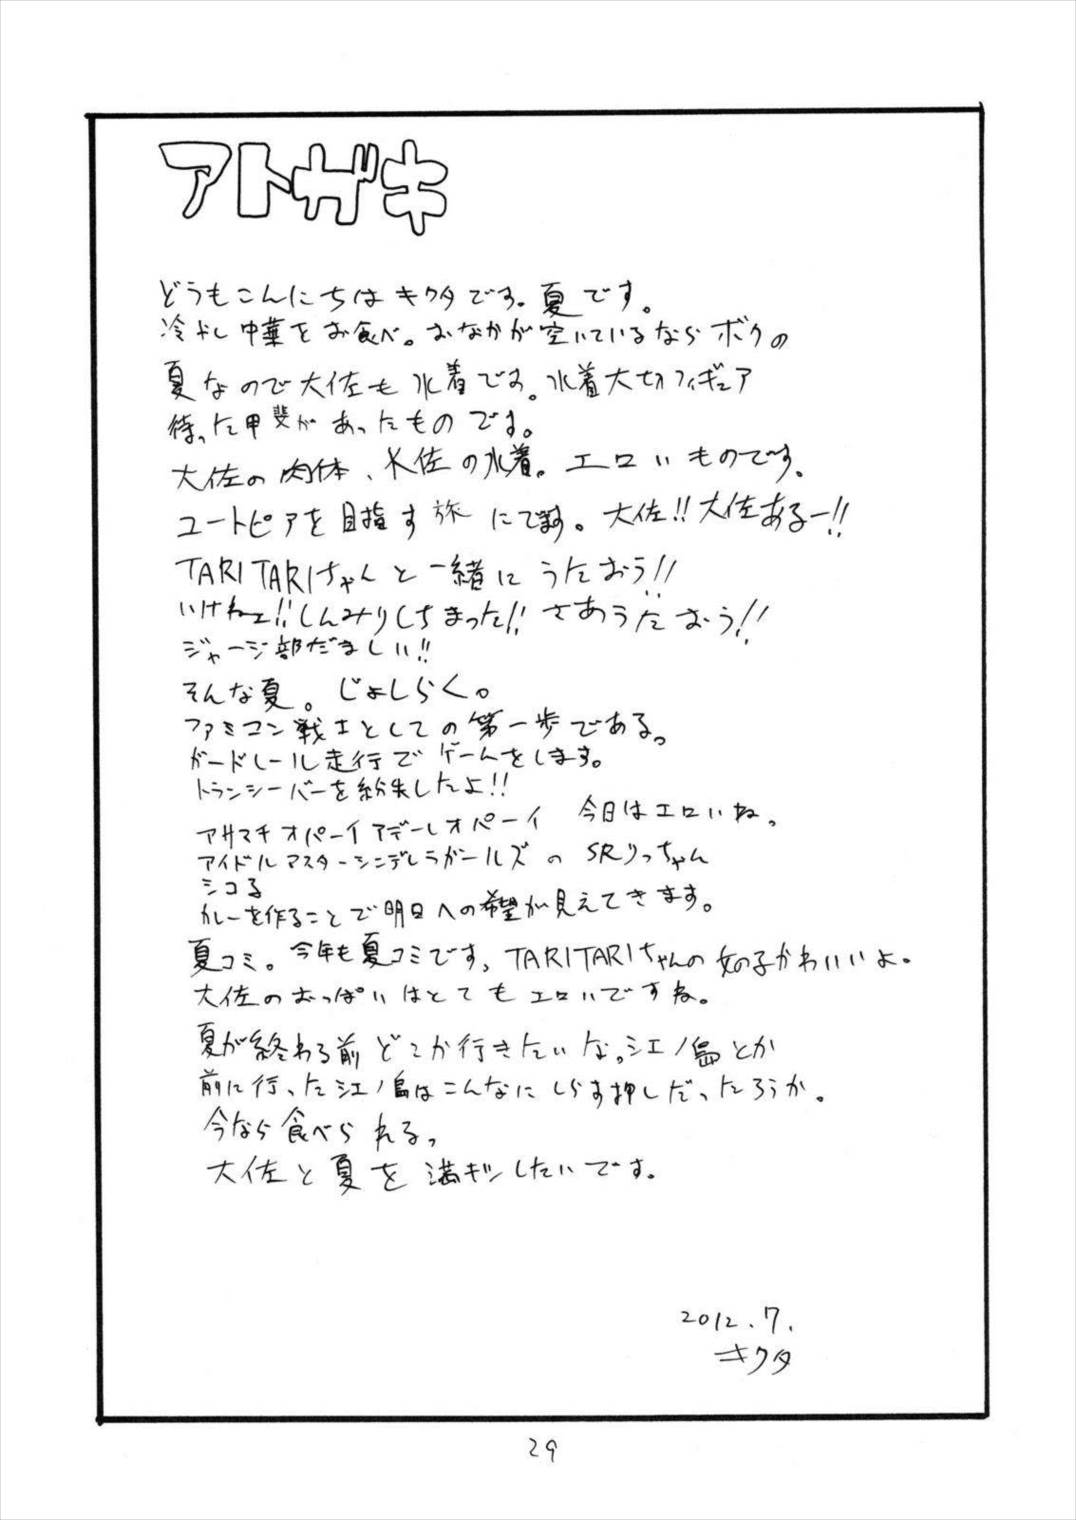 アトガキ
どうもこんにちはキクタです。夏です。
冷やし中華をお食べ。おなかが空いているならボクの
夏なので大佐も水着です。水着大切フィギュア
待った甲斐があったものです。
大佐の肉体、大佐の水着。エロいものです。
ユートピアを目指す旅にでます。大佐!!大佐あるー!!
TARITARIちゃんと一緒にうたおう!!
いけねェ!!しんみりしちまった!!さあうたおう!!
ジャージ部だましい!!
そんな夏。じょしらく。
ファミコン戦士としての第一歩である。
ガードレール走行でゲームをします。
トランシーバーを紛失したよ!!
アサマチオパーイアデールオパーイ 今日はエロいね。
アイドルマスターシンデレラガールズのSRりっちゃん
シコる
カレーを作ることで明日への希望が見えてきます。
夏コミ。今年も夏コミです、TARITARIちゃんの女の子かわいいよ。
大佐のおっぱいはとてもエロいですね。
夏が終わる前どこか行きたいな。江ノ島とか
前に行った江ノ島はこんなにしらす押しだったろうか。
今なら食べられる。
大佐と夏を満キツしたいです。
2012.7.
キクタ
29